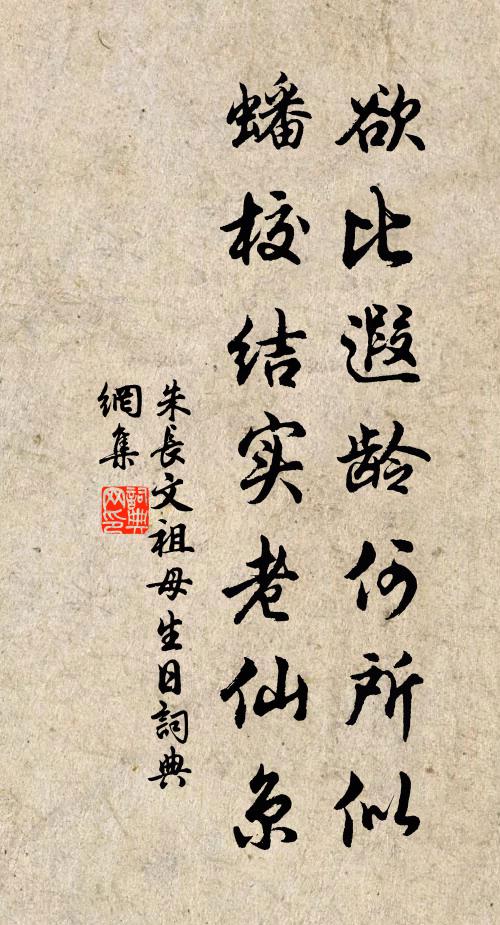 欲比遐龄何所似
蟠校结实老仙京
朱長文祖母生日詞典
網集
詞典
网印